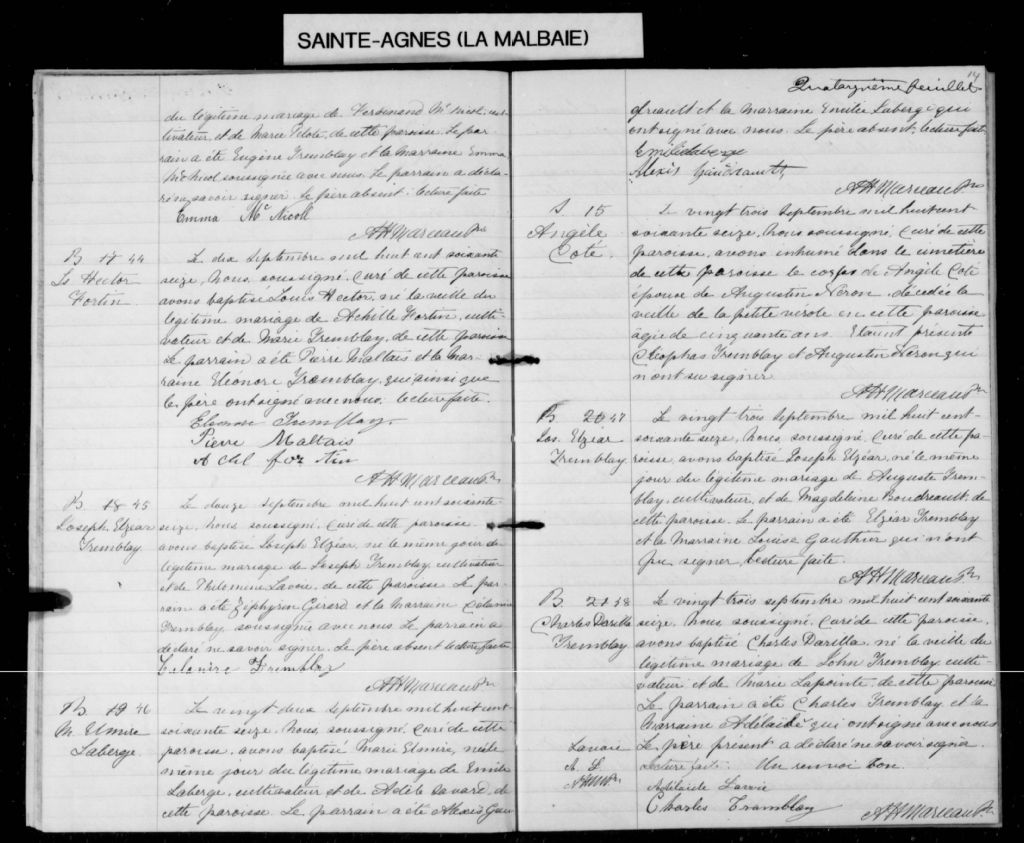 SAINTE-AGNES (LA MALBAIE)
du légitime mariage de Ferdinand Mc Nicol, cul-
tivateur et de Marie Pilote, de cette paroisse. Le par
rain a été Eugène Tremblay et la Marraine Emma
McNicol soussignée avec nous. Le parrain a décla-
ré ne savoir signer. Le père absent. lecture faite
Emma Mc Nicoll
AH Marceau Ptre
B 17 44
Ls Hector
Fortin
Le dix Septembre mil huit cent soixante
seize, Nous, soussigné, curé de cette paroisse
avons baptisé Louis Hector, né la veille du
légitime mariage de Achille Fortin, culti-
vateur et de Marie Tremblay, de cette paroisse
Le parrain a été Pierre Maltais et la Mar-
raine Eléonore Tremblay, qui ainsi que
le père ont signé avec nous. lecture faite.
Eleonore Tremblay
Pierre Maltais
A chil for tin
AH Marceau Ptre
B 18 45
Joseph Elzéar
Tremblay
Le douze Septembre mil huit cent soixante
seize, Nous, soussigné, Curé de cette paroisse
avons baptisé Joseph Elzéar, né le même jour du
légitime mariage de Joseph Tremblay, cultivateur
et de Philomène Lavoie, de cette paroisse. Le par-
rain a été Zéphyrin Girard et la Marraine
Tremblay soussignée avec nous. Le parrain a
déclaré ne savoir signer. Le père absent. lecture faite
Tremblay
AH Marceau Ptre
B 19 46
M. Elmire
Laberge
Le vingt deux Septembre mil huit cent
soixante seize, Nous, soussigné, Curé de cette
paroisse, avons baptisé Marie Elmire, née le
même jour du légitime mariage de Emile
Laberge, cultivateur et de Adèle Savard, de
cette paroisse. Le parrain a été Alexis Gau
14
Quatorzième feuillet
dreault et la Marraine Emilie Laberge qui
ont signé avec nous. Le père absent. lecture faite
Emilie laberge
Alexis Gaudreault
AH Marceau Ptre
S. 15
Angèle
Coté
Le vingt trois Septembre mil huit cent
soixante seize, Nous soussigné, Curé de cette
paroisse, avons inhumé dans le cimetière
de cette paroisse le corps de Angèle Coté
épouse de Augustin Néron, décédée la
veille de la petite vérole en cette paroisse
âgée de cinquante ans. Etaient présents
Cléophas Tremblay et Augustin Néron qui
n'ont su signer
AH Marceau Ptre
B. 20 47
Jos. Elzéar
Tremblay
Le vingt trois Septembre mil huit cent-
soixante seize, Nous, soussigné, Curé de cette pa-
roisse, avons baptisé Joseph Elzéar, né le même
jour du légitime mariage de Auguste Trem-
blay, cultivateur, et de Magdeleine Boudreault, de
cette paroisse. Le parrain a été Elzéar Tremblay
et la Marraine Louise Gauthier qui n'ont
pu signer, Lecture faite.
AH Marceau Ptre
B. 21 48
Charles Darilla
Tremblay
Le vingt trois septembre mil huit cent soixante
seize, Nous soussigné, Curé de cette paroisse,
avons baptisé Charles Darilla, né la veille du
légitime mariage de John Tremblay, culti-
vateur et de Marie Lapointe, de cette paroisse
Le parrain a été Charles Tremblay, et la
Marraine Adélaïde qui ont signé avec nous
Lavoie
A. L.
AHM Ptr
Le père présent a déclaré ne savoir signer.
Lecture faite. Un renvoi bon.
Adélaïde Lavoie
Charles Tramblay
AH Marceau Ptre